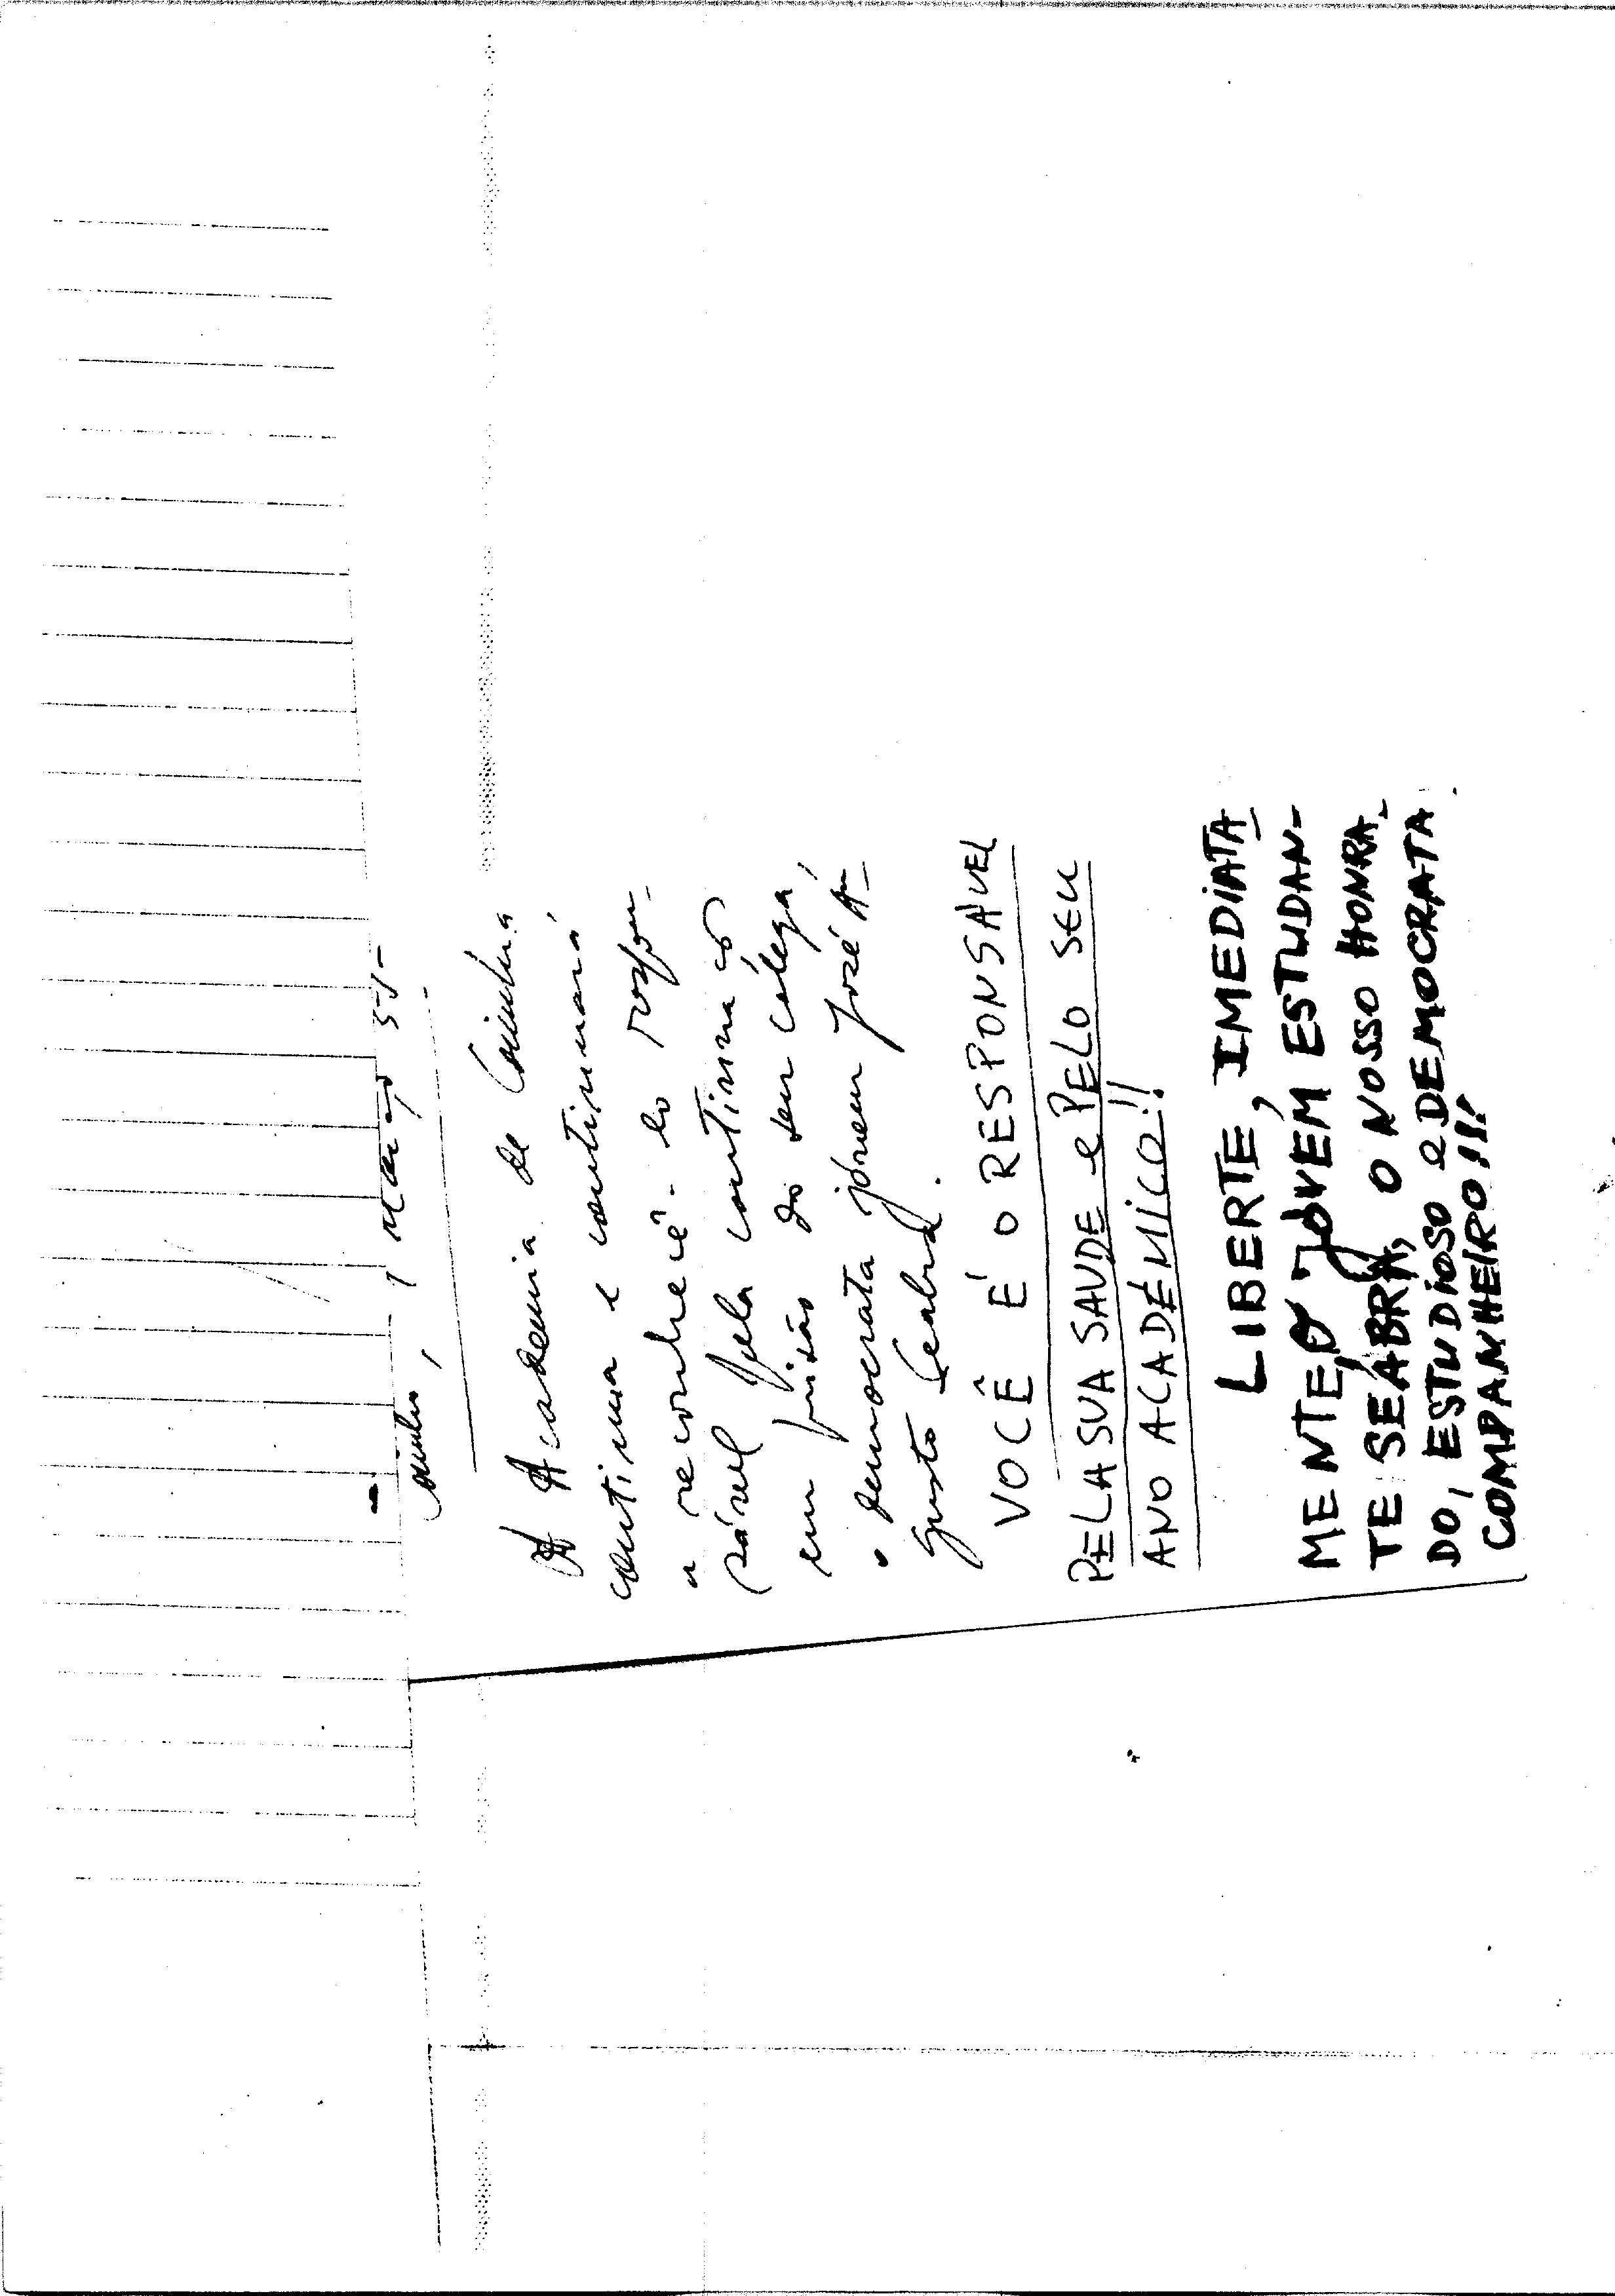 Março 55-
A Academia de Coimbra
continua e continuará
a reconhecê-lo respon-
sável pela contínua
em prisão do seu colega,
o democrata jovem José Au-
gusto Seabra.
VOCÊ É O RESPONSAVEL
PELA SUA SAUDE e PELO SEU
ANO ACADÉMICO!!
LIBERTE, IMEDIATA
MENTE, O JOVEM ESTUDAN-
TE SEABRA, O NOSSO HONRA-
DO, ESTUDIOSO e DEMOCRATA
COMPANHEIRO!!!